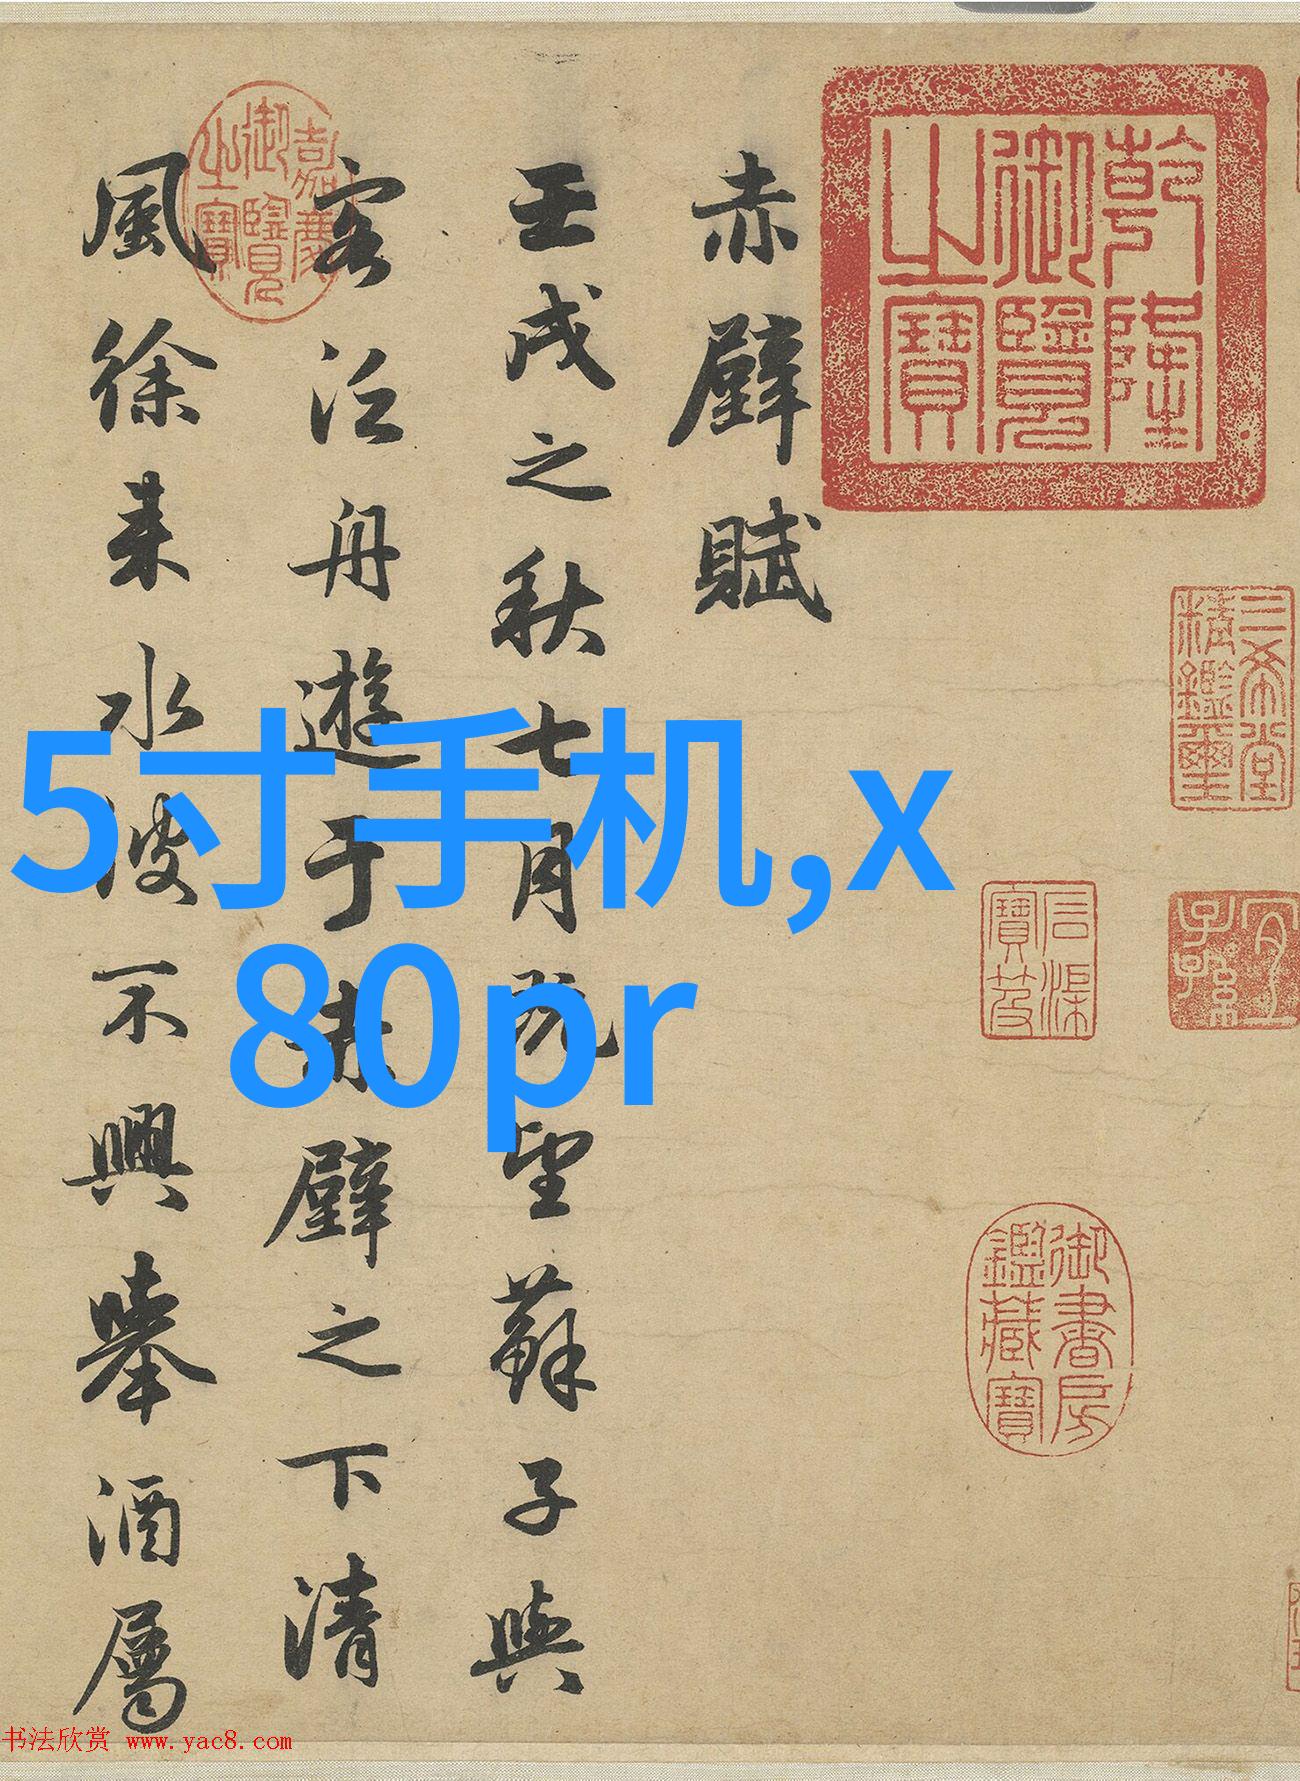 赤壁賦
壬戌之秋七月既望蘇子與
客泛舟遊于赤壁之下清
風徐来水波不興舉酒屬
乾隆御覽之寶
嘉慶御覽之寶
三希堂精鑑璽
宜子孫
御書房鑑藏寶
5寸手机,x
80pr
书法欣赏 www.yac8.com